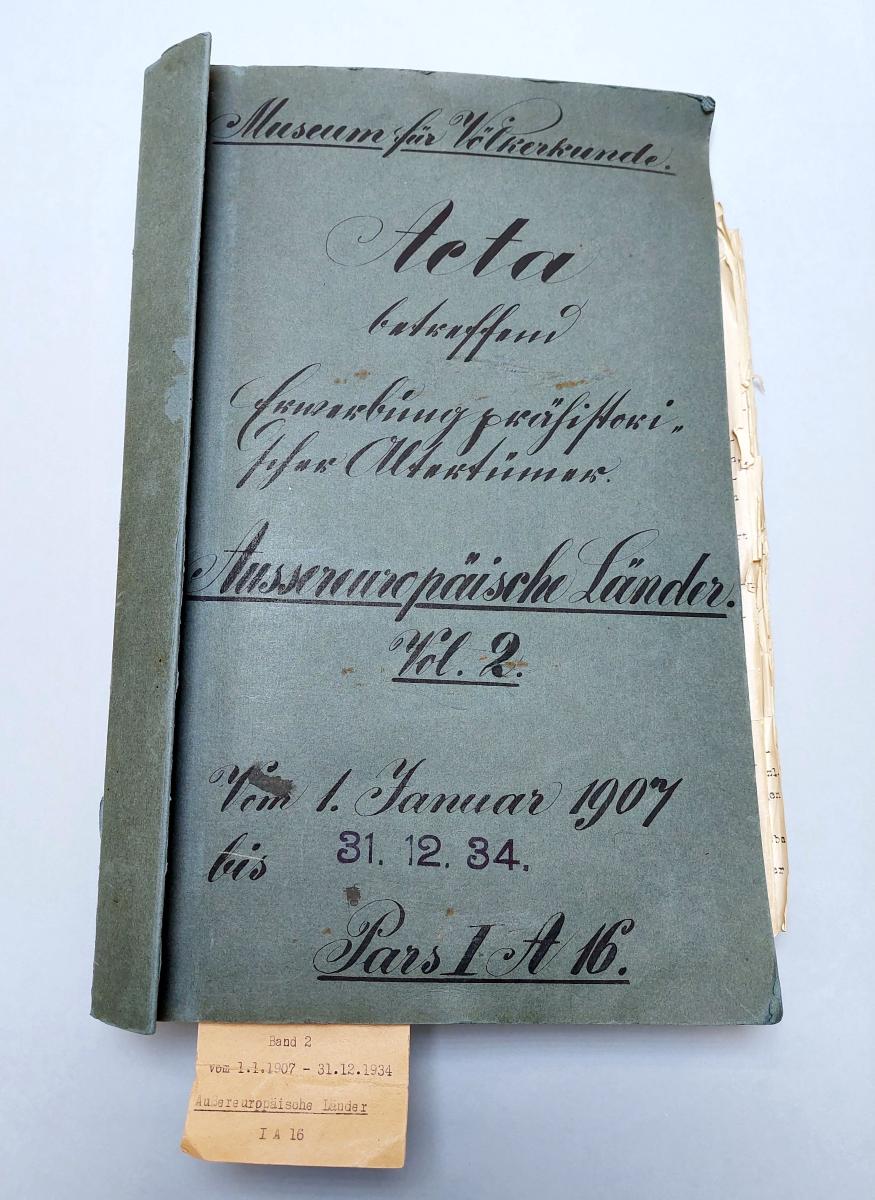 Museum für Völkerkunde.
Acta
betreffend
Erwerbung prähistori„
scher Altertümer.
Aussereuropäische Länder.
Vol. 2.
Vom 1. Januar 1907
bis 31. 12. 34.
Pars I A 16.
Band 2
vom 1.1.1907 - 31.12.1934
Außereuropäische Länder
I A 16